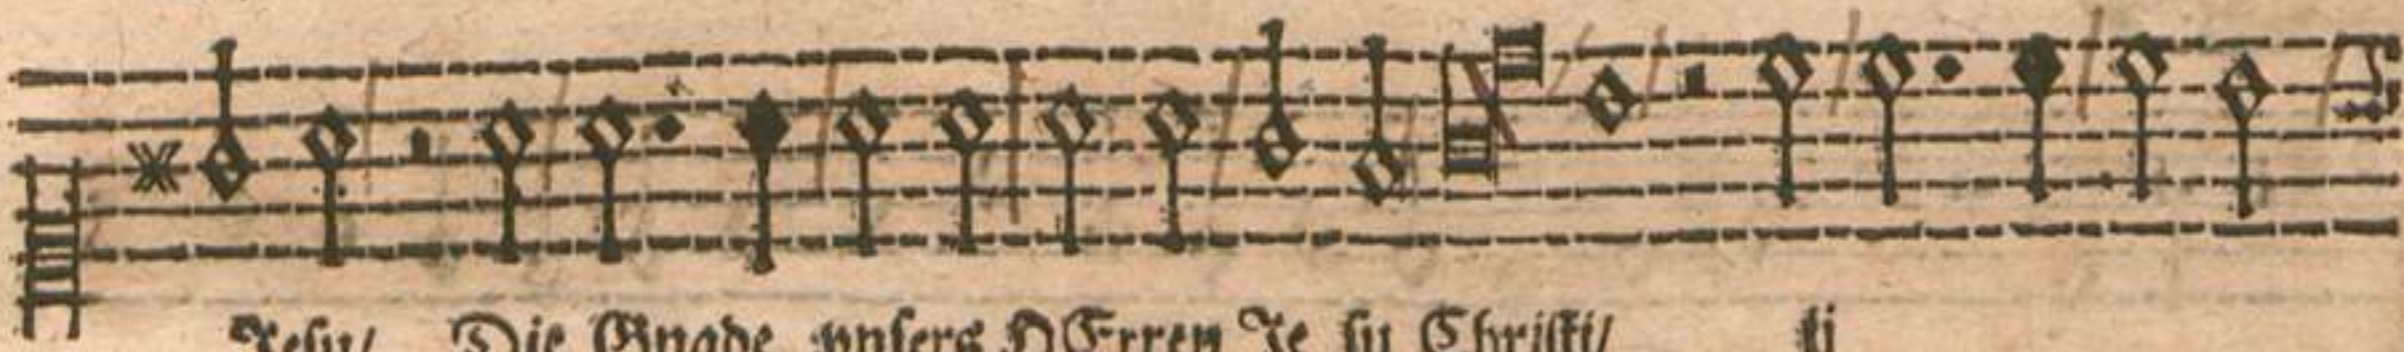 Jesu/ Die Gnade vnsers HErren Je su Christi/ ij